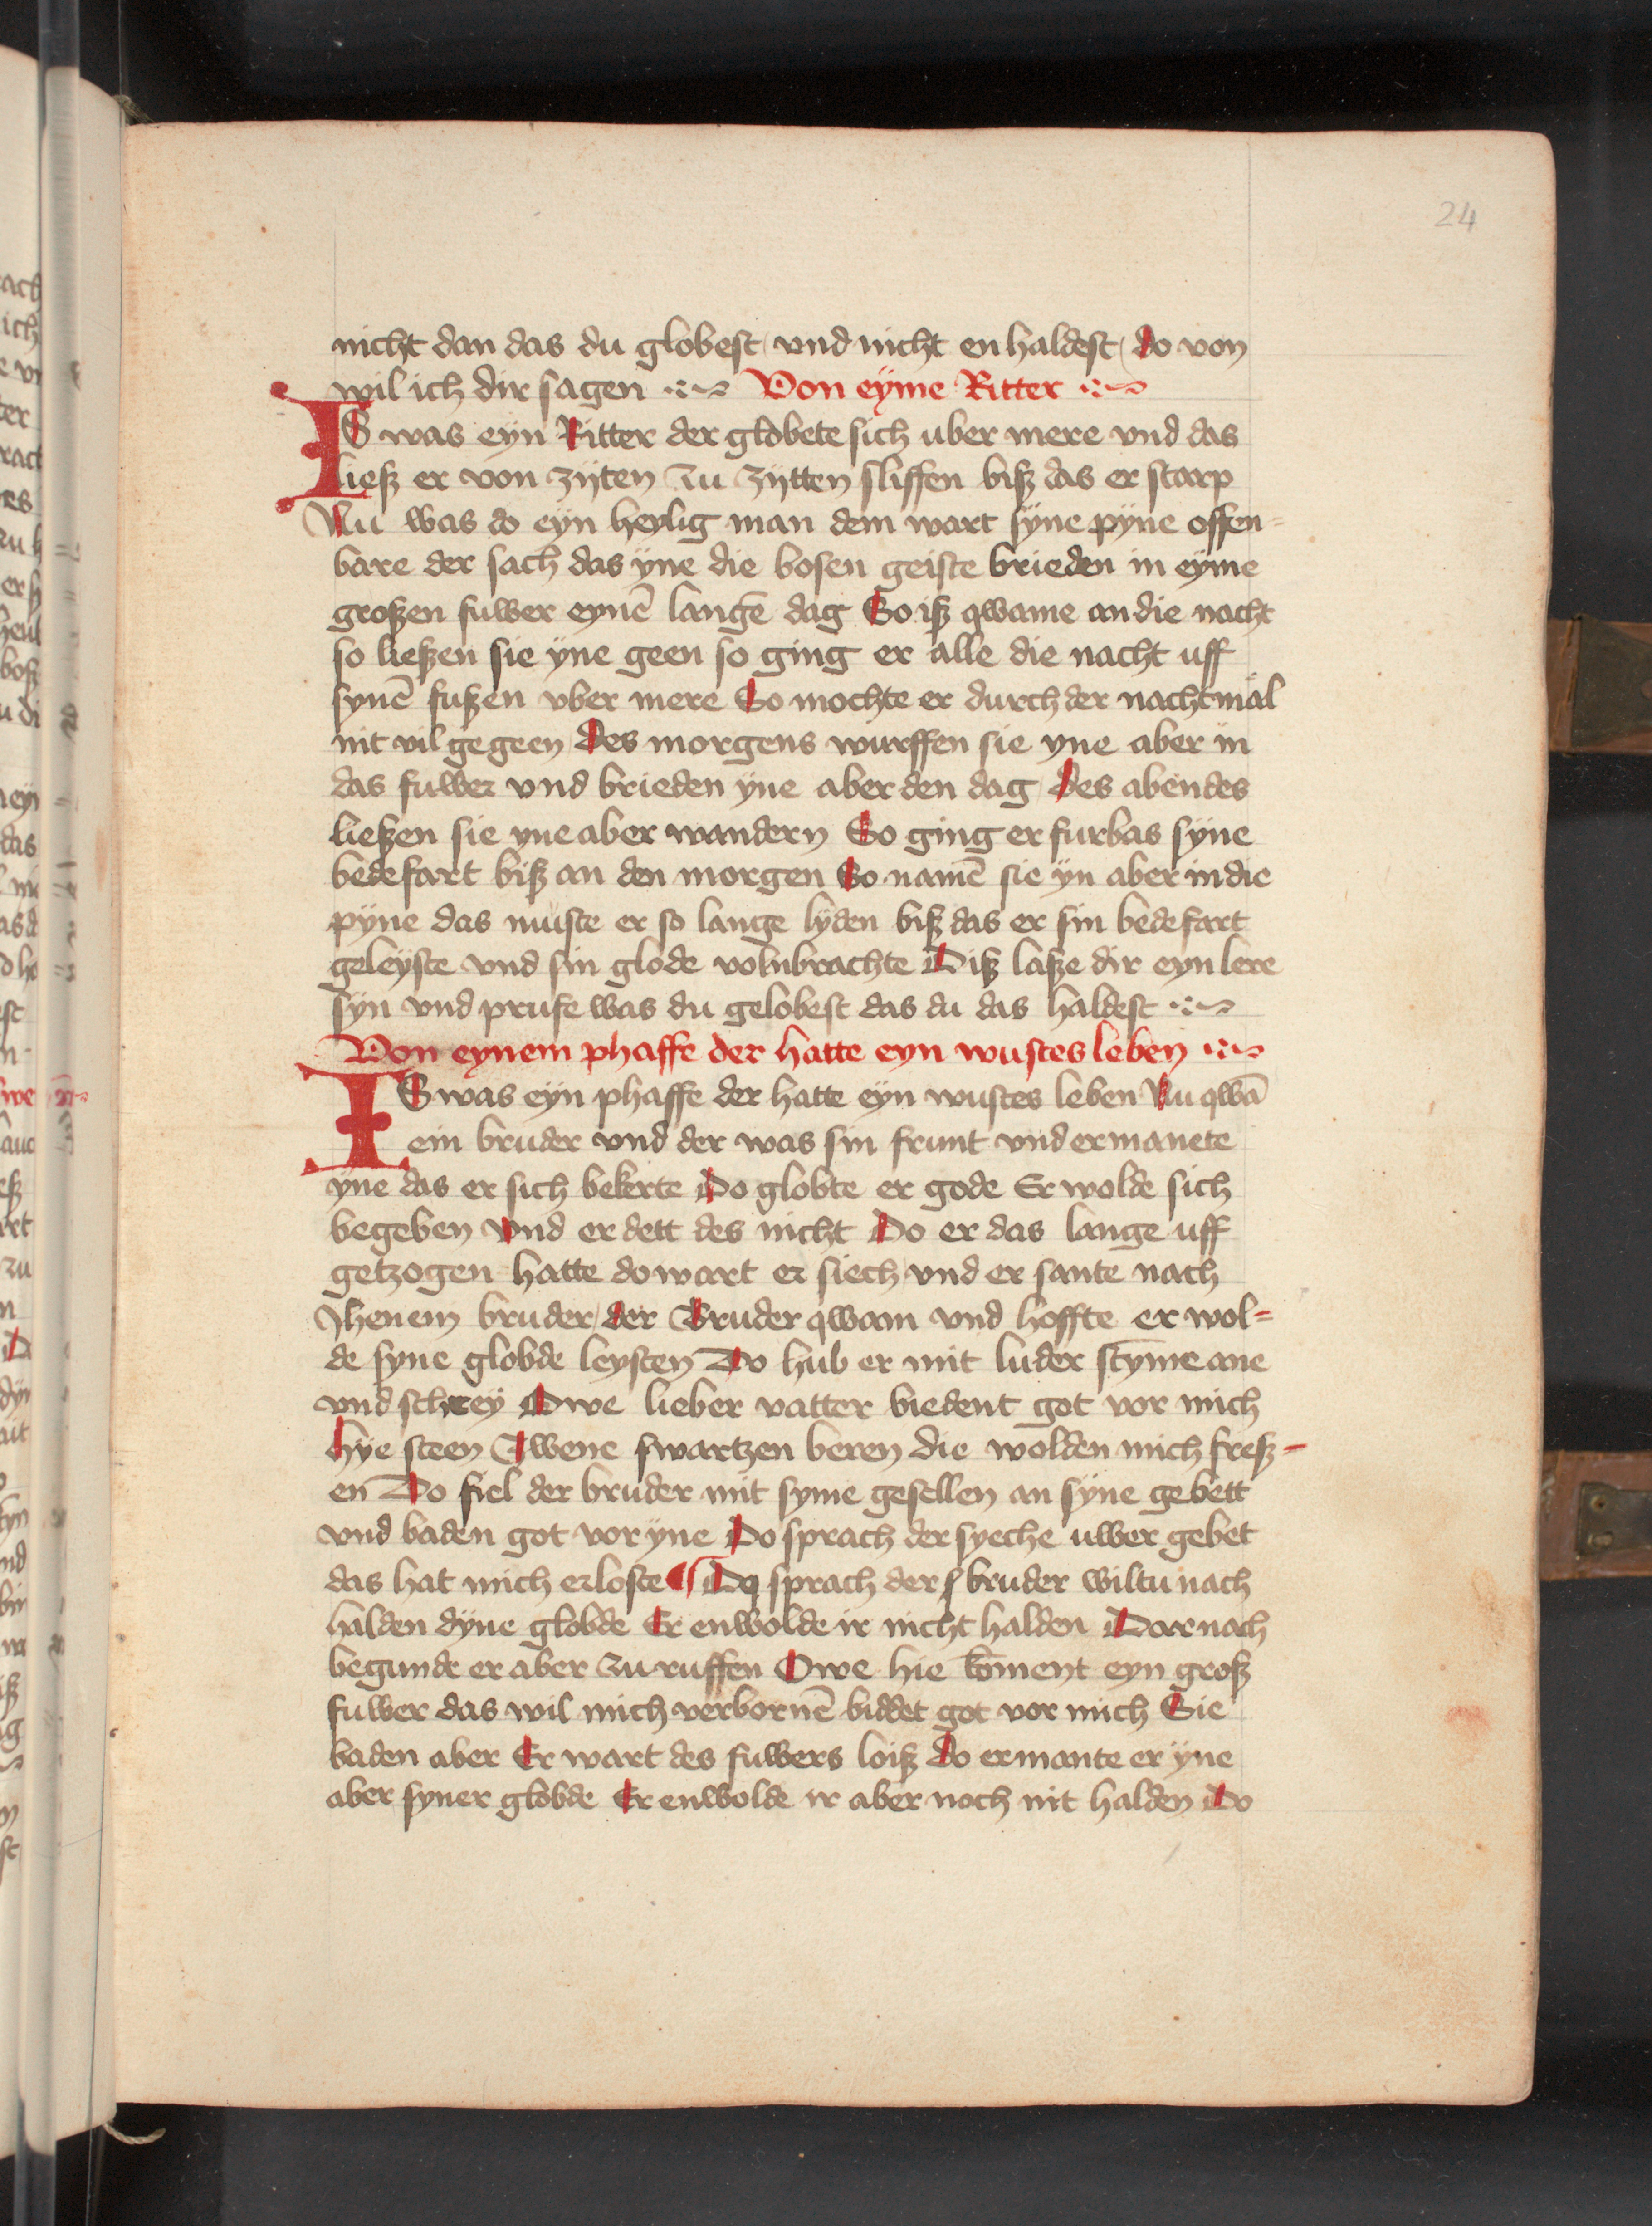 24
nicht dan das du globest / und nicht en haldest / do von
wil ich dir sagen Von eyme Ritter
IS was eyn Ritter der globete sich uber mere vnd das
ließ er von zyten zu zytten sliffen biß das er starp
Nu was do eyn heylig man dem wart syne pyne offen-
bare der sach das yne die bosen geiste brieden in eyme
großen fuwer eynē langē dag So iß qwame an die nacht
so ließen sie yne geen so ging er alle die nacht uff
synē fußen vber mere So mochte er durch der nacht mal
nit vil gegeen Des morgens wurffen sie yne aber in
das fuwer vnd brieden yne aber den dag Des abendes
ließen sie yne aber wandern So ging er furbas syne
bedefart biß an den morgen So namē sie yn aber in die
pyne das muste er so lange lyden biß das er sin bedefart
geleyste vnd sin glode volnbrachte Diß laße dir eyn lere
syn vnd prufe was du gelobest das du das haldest
Von eynem phaffe der hatte eyn wustes leben
IS was eyn phaffe der hatte eyn wustes leben Nu qwā
ein bruder vnd der was sin frunt vnd ermanete
yne das er sich bekerte Do globte er gode Er wolde sich
begeben vnd er dett des nicht Do er das lange uff
getzogen hatte do wart er siech vnd er sante nach
Jhenem bruder / der Bruder qwam vnd hoffte er wol-
de syne globde leysten Do hub er mit luder stȳme ane
vnd schrey Owe lieber vatter biedent got vor mich
hye steen Zwene swartzen beren die wolden mich freß-
en Do fiel der bruder mit syme gesellen an syne gebett
vnd baden got vor yne Do sprach der syeche uwer gebet
das hat mich erloste ¶ Do sprach der bruder wiltu nach
halden dyne globde Er enwolde ir nicht halden Dar nach
begunde er aber zu ruffen Owe hie kōment eyn groß
fuwer das wil mich verbornē biddet got vor mich Sie
baden aber Er wart des fuwers loiß Do ermante er yne
aber syner globde Er enwolde ir aber noch nit halden Do